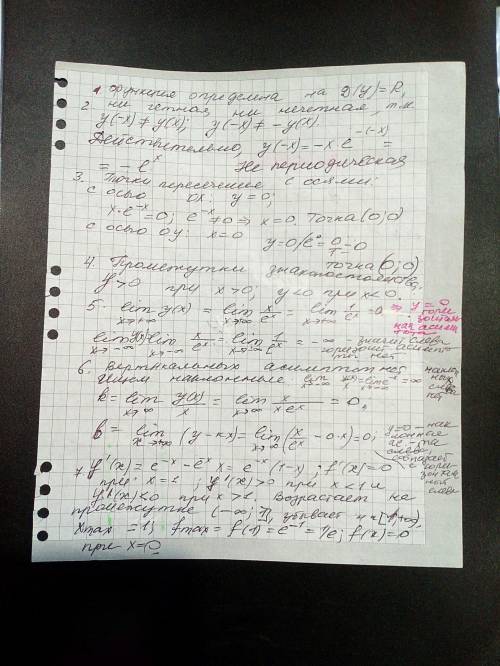 1. Функция определена на D(y) = R,
2. ни четная, ни нечетная, т.к.
y(-x) ≠ y(x); y(-x) ≠ -y(x).
Действительно, y(-x) = -x·e^{-(-x)} =
= -e^x Не периодическая
3. Точки пересечение с осями:
с осью ox: y=0;
x·e^{-x}=0; e^{-x}≠0 ⇒ x=0. Точка (0;0)
с осью oy: x=0
y=0/e^0=0/1=0
точка (0;0)
4. Промежутки знакопостоянства,
y>0 при x>0; y<0 при x<0.
5. lim_{x→+∞} y(x) = lim_{x→+∞} x/e^x = lim_{x→+∞} 1/e^x = 0 ⇒ y=0
горизонтальная асимптота
lim_{x→-∞} y(x) = lim_{x→-∞} x/e^x = lim_{x→-∞} 1/e^x = -∞ значит слева
горизонт асимптоты нет
6. Вертикальных асимптот нет
Ищем наклонные
k = lim_{x→∞} y(x)/x = lim_{x→∞} x/(x e^x) = 0,
b = lim_{x→∞} (y-kx) = lim_{x→∞} (x/e^x - 0·x) = 0;
y=0 - наклонная
7. y'(x) = e^{-x} - e^{-x} x = e^{-x}(1-x); f'(x)=0
при x=1; y'(x)>0 при x<1 и
y'(x)<0 при x>1. Возрастает на
промежутке (-∞; 1], убывает на [1; +∞),
x max = 1; f max = f(1) = e^{-1} = 1/e; f(x)=0
при x=0